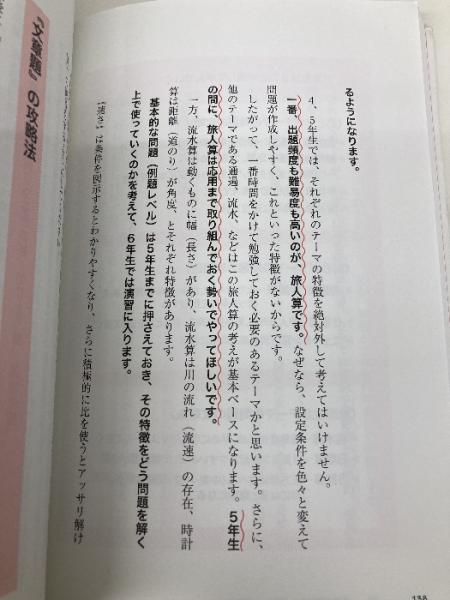 るようになります。
4、5年生では、それぞれのテーマの特徴を絶対外して考えてはいけません。
一番、出題頻度も難易度も高いのが、旅人算です。なぜなら、設定条件を色々と変えて
問題が作成しやすく、これといった特徴がないからです。
したがって、一番時間をかけて勉強しておく必要のあるテーマかと思います。さらに、
他のテーマである通過、流水、などはこの旅人算の考えが基本ベースになります。5年生
の間に、旅人算は応用まで取り組んでおく勢いでやってほしいです。
一方、流水算は動くものに幅（長さ）があり、流水算は川の流れ（流速）の存在、時計
算は距離（道のり）が角度、とそれぞれ特徴があります。
基本的な問題（例題レベル）は5年生までに押さえておき、その特徴をどう問題を解く
上で使っていくのかを考えて、6年生では演習に入ります。
『速さ』は条件を図示するとわかりやすくなり、さらに積極的に比を使うとアッサリ解け
『文章題』の攻略法
138